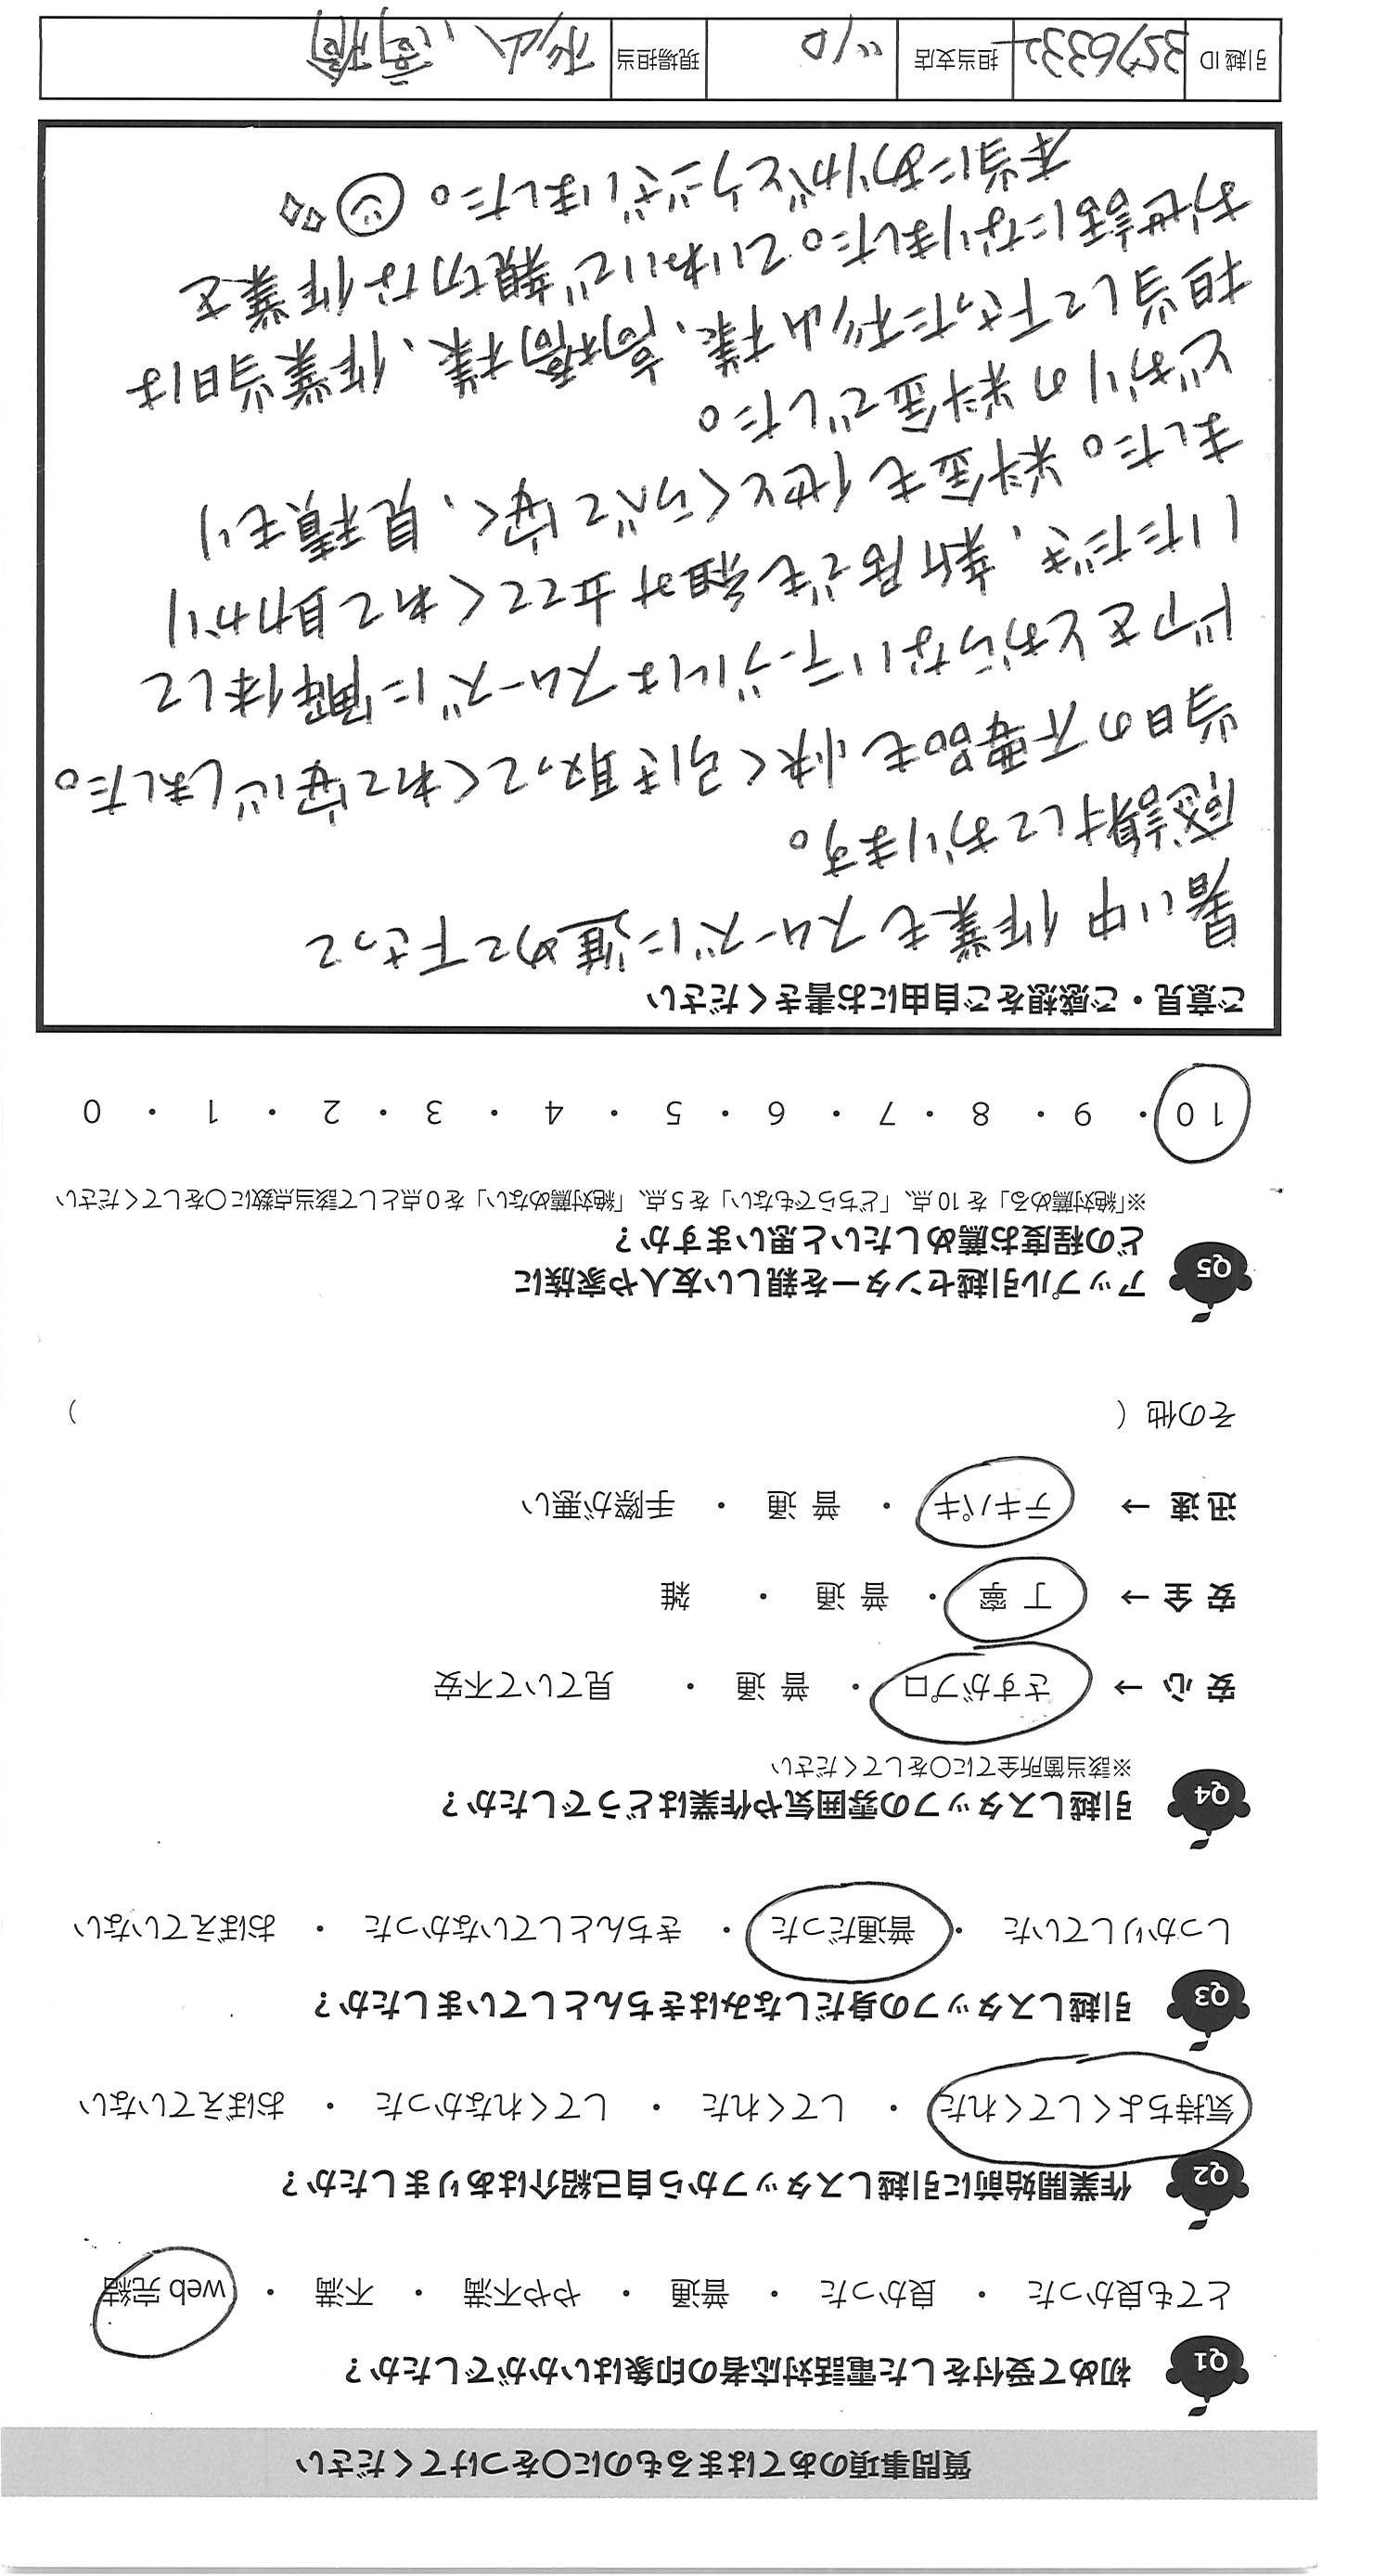 質問事項のあてはまるものに〇をつけてください
Q1 初めて受付をした電話対応者の印象はいかがでしたか？
とても良かった ・ 良かった ・ 普通 ・ やや不満 ・ 不満 ・ web 完結
Q2 作業開始前に引越しスタッフから自己紹介はありましたか？
気持ちよくしてくれた ・ してくれた ・ してくれなかった ・ おぼえていない
Q3 引越しスタッフの身だしなみはきちんとしていましたか？
しっかりしていた ・ 普通だった ・ きちんとしていなかった ・ おぼえていない
Q4 引越しスタッフの雰囲気や作業はどうでしたか？
※該当箇所全てに〇をしてください
安 心 → さすがプロ ・ 普 通 ・ 見ていて不安
安 全 → 丁 寧 ・ 普 通 ・ 雑
迅 速 → テキパキ ・ 普 通 ・ 手際が悪い
その他（ ）
Q5 アップル引越センターを親しい友人や家族に
どの程度お薦めしたいと思いますか？
※「絶対薦める」を 10 点、「どちらでもない」を 5 点、「絶対薦めない」を 0 点として該当点数に〇をしてください
10 ・ 9 ・ 8 ・ 7 ・ 6 ・ 5 ・ 4 ・ 3 ・ 2 ・ 1 ・ 0
ご意見・ご感想をご自由にお書きください
暑い中作業もスムーズに進めて下さって
感謝しております。
当日の不要品も快く引き取ってくれて安心しました。
ドアをとおらないテーブルはスムーズに解体して
いただき、新居でも組み立ててくれて助かり
ました。料金も他とくらべて安く、見積もり
どおりの料金でした。
担当して下さった杉山様、高橋様、作業当日は
お世話になりました。ていねいで親切な作業を
本当にありがとうございました。
引越 ID 担当支店 現場担当 杉山、高橋